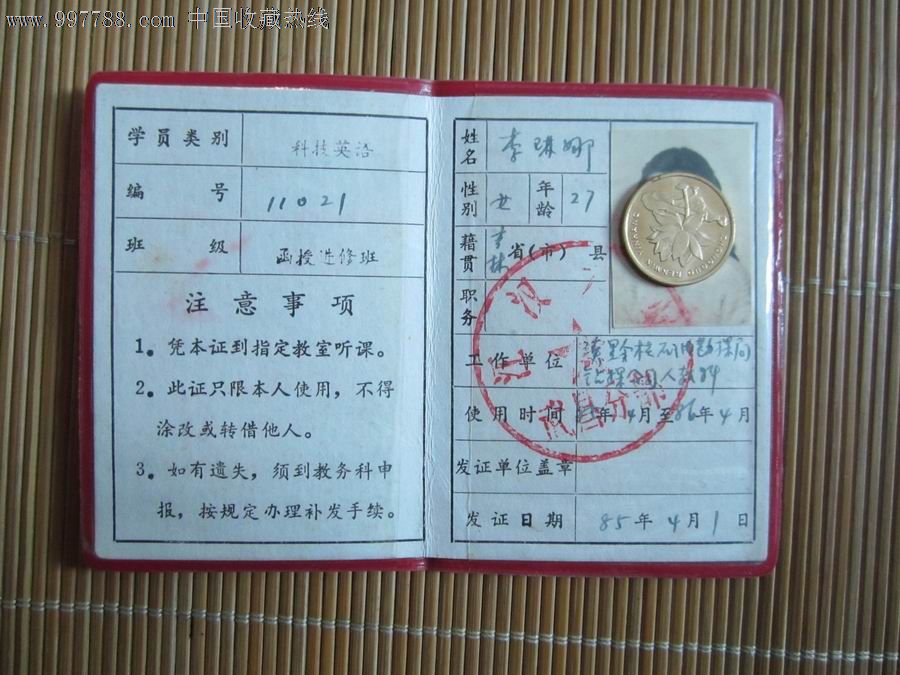 www.997788.com 中国收藏热线
学员类别 科技英语
编号 11021
班级 函授进修班
注意事项
1。凭本证到指定教室听课。
2。此证只限本人使用，不得
涂改或转借他人。
3。如有遗失，须到教务科申
报，按规定办理补发手续。
姓名 李琳娜
性别 女 年龄 27
籍贯 吉林 省(市) 县
职务
工作单位
使用时间 年4月至86年4月
发证单位盖章
发证日期 85年4月1日